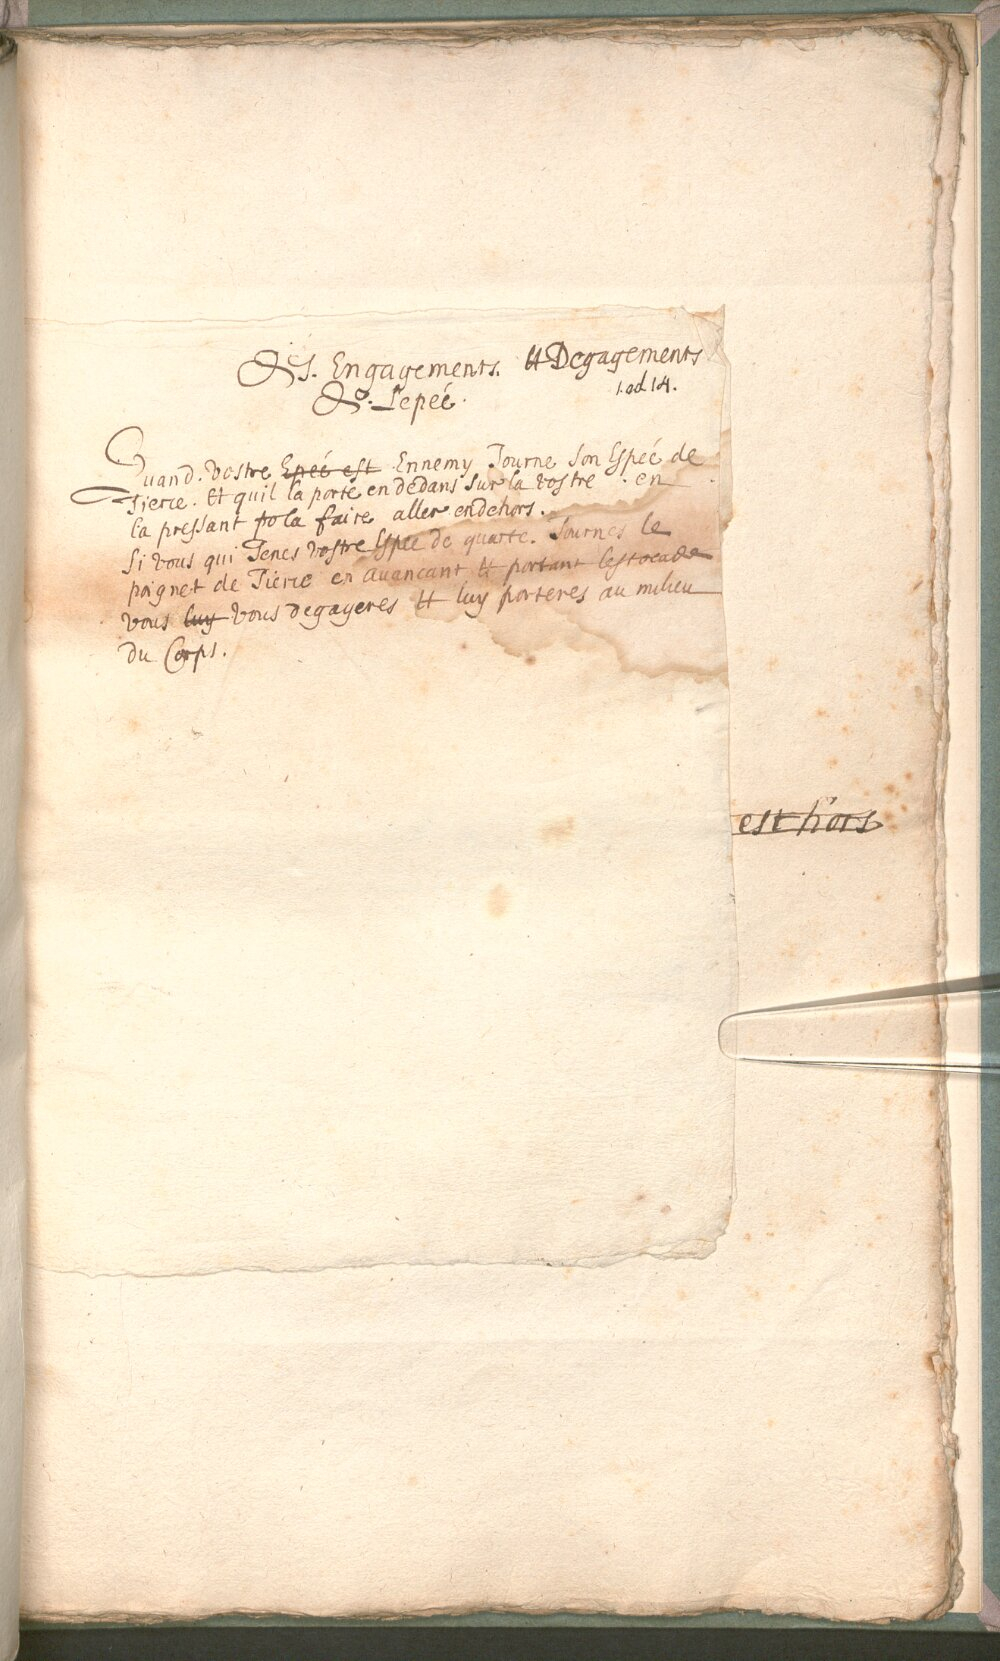 Des. Engagements. Et Degagements
1. ad 14.
De. Lepeé.
Quand. Vostre ~~Epeé est~~ Ennemy Tourne Son Espeé de
Tierce. Et quil la porte en dedans sur la vostre . en
la pressant po la faire aller endehors.
Si vous qui Tenes vostre Espeé de quarte. Tournes le
poignet de Tierce en avancant Et portant lestocade
vous ~~luy~~ vous degageres Et luy porteres au milieu
du Corps.
~~est hors~~